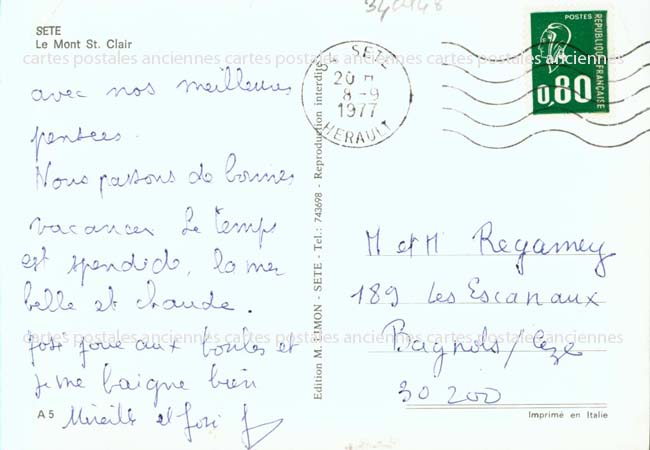 34148
SETE
Le Mont St. Clair
cartes postales anciennes cartes postales anciennes cartes postales anciennes cartes postales anciennes
avec nos meilleures
pensées.
Nous passons de bonnes
vacances Le temps
est spendide, la mer
belle et chaude.
José joue aux boules et
je me baigne bien
Mireille et José
A 5
Edition M. SIMON - SETE - Tel.: 743698 - Reproduction interdite
SETE
20 H
8 - 9
1977
HERAULT
POSTES
REPUBLIQUE FRANÇAISE
0,80
M et M Regamey
189 Les Escanaux
Bagnols/Ceze
30 200
cartes postales anciennes cartes postales anciennes cartes postales anciennes cartes postales anciennes
Imprimé en Italie